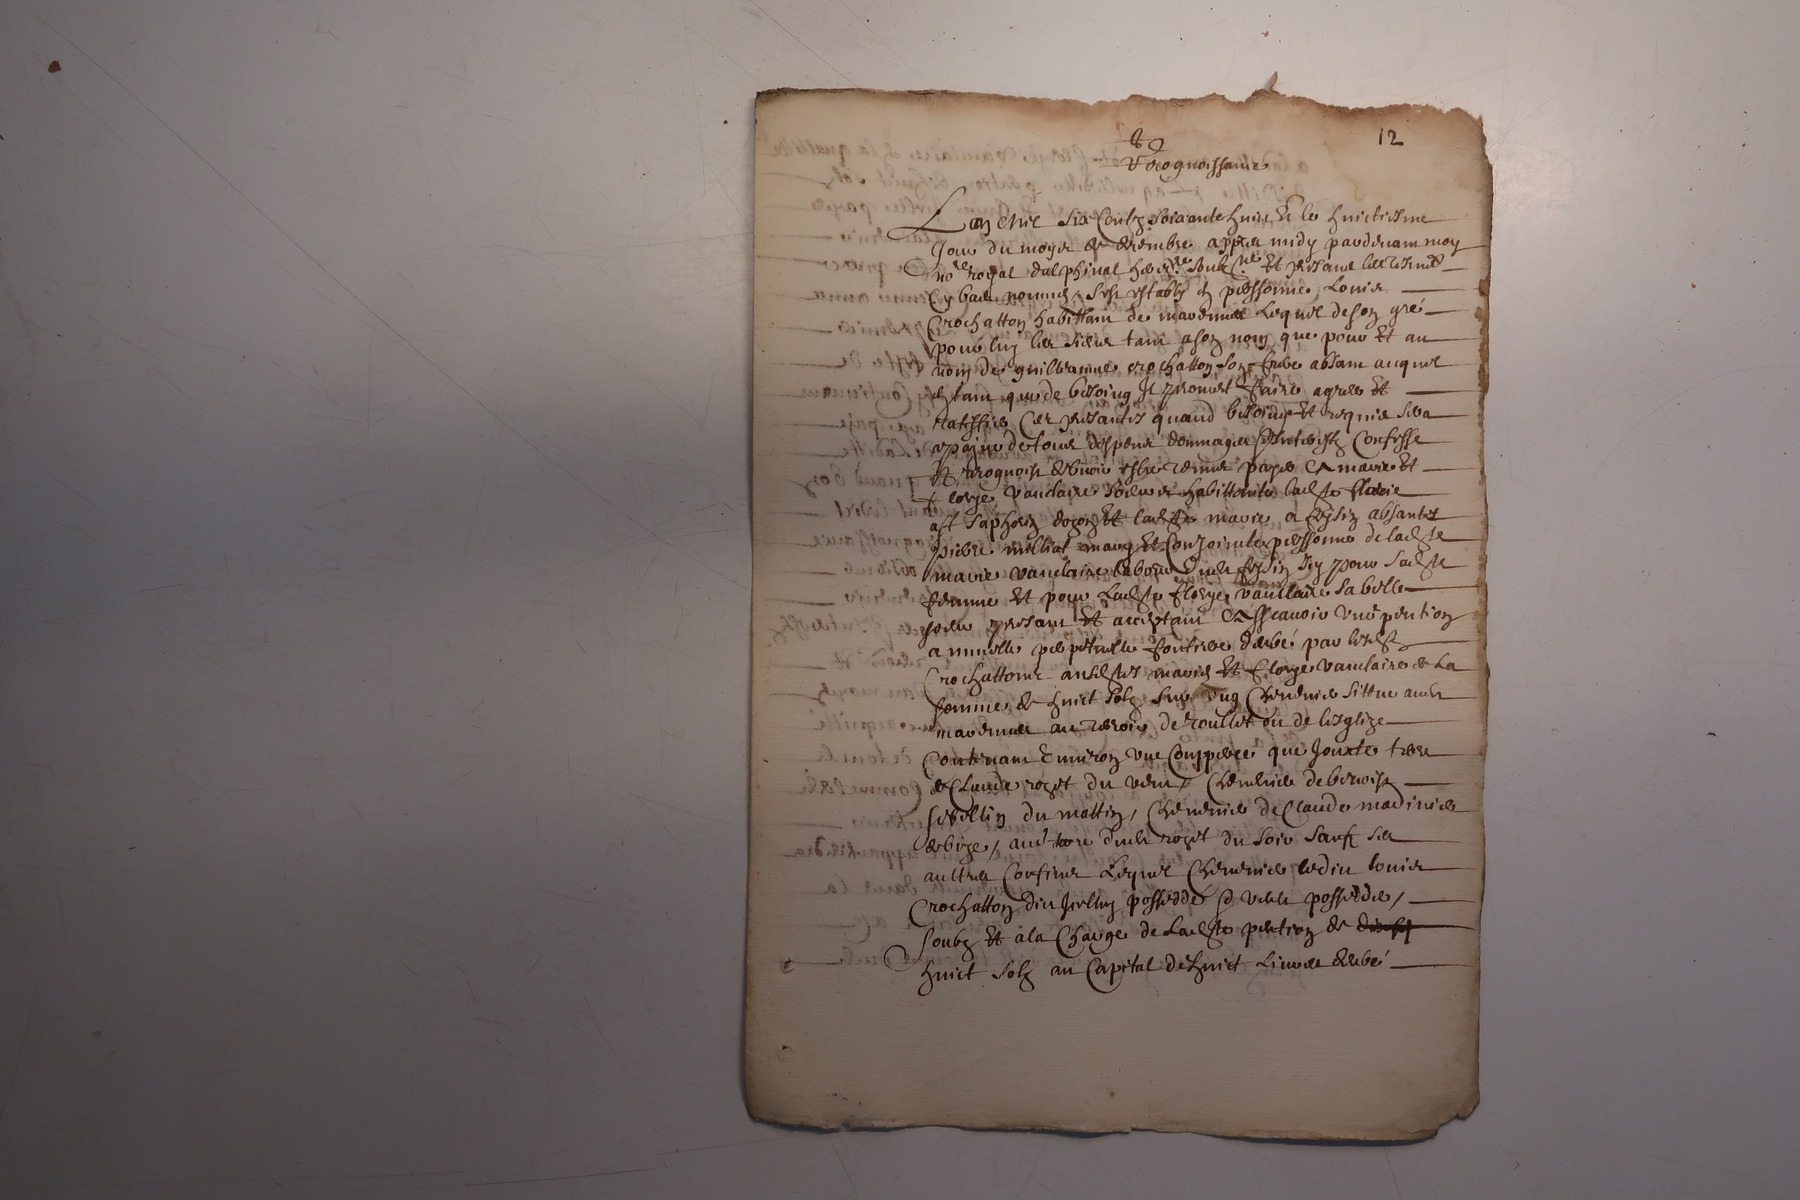 12
Recognoissance
L'an mil six centz soixante huict & le huictiesme
Jour du moys de decembre appres midy pardevant moy
no.re royal dalphinal soub.né et presans les tesmoings
cy bas nommes s'est estably en personne Louis
Crochatton habittant de lequel de son gré
pour luy les siens tant a son nom que pour et au
nom de guillaume crochatton son frere absant auquel
en tant que de besoing Il promet faire agreer et
ratiffier ces presantes quand besoing et requis sera
a payne de tous despens dommages Interestz Confesse
et recognoist debvoir estre tenus payer A marie et
florye vauclaire soeurs habittante ladite florie
a st saphorin dozon et ladite marie a absantes
pierre milliat mary et conjointe personne de ladite
marie vauclaire dudit Icy pour sadite
femme et pour ladite florye vauclaire sa belle
soeur presant et acceptant Assavoir une pention
annuelle perpetuelle fontiere deubé par lesdits
Crochattons ausdites maries et florye vauclaire de la
somme de huict solz sur ung Chenevier sittue audit
au terroir de roullet ou de lesglize
Contenant environ une Coupperée que Jouxte terre
de Claude roget du vent, Chenevier de benoist
du mattin, Chenevier de Claude
de bize, aue terre dudit roget du soir sauf ses
aultres Confins Lequel Chenevier ledit louis
Crochatton dit possedde & veult possedder,
soubz et a la Charge de ladite pention de
huict solz au Capital de huict livres deubé